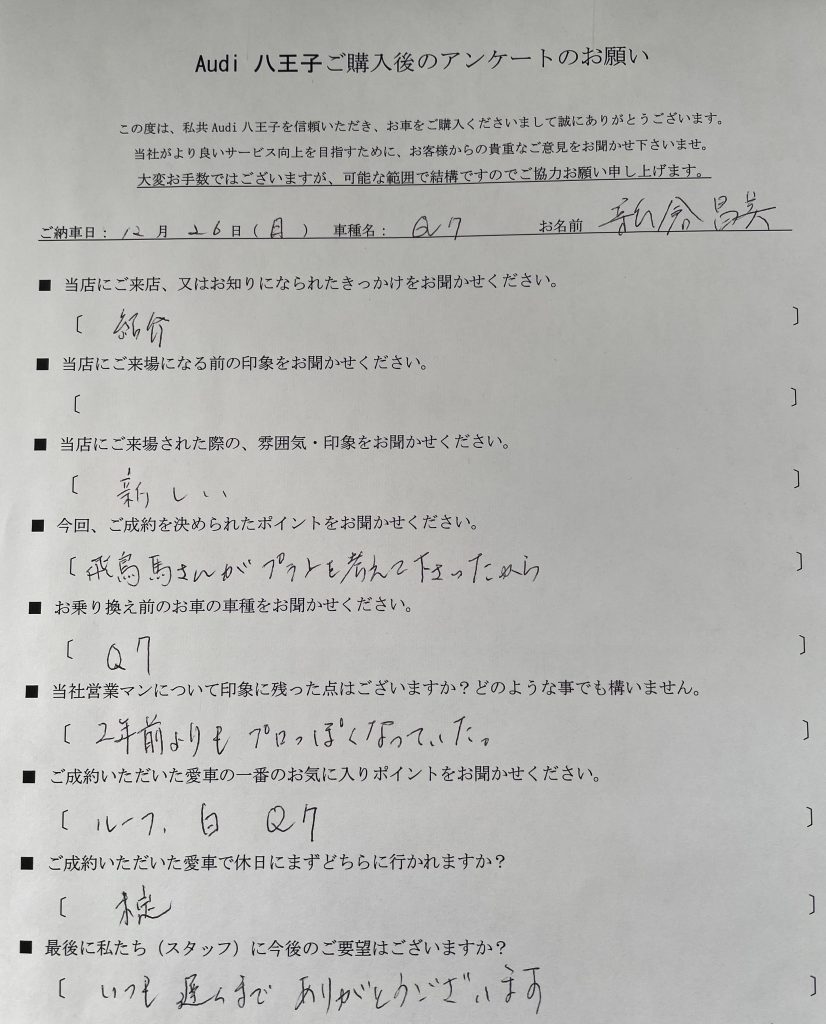 Audi 八王子ご購入後のアンケートのお願い
この度は、私共 Audi 八王子を信頼いただき、お車をご購入くださいまして誠にありがとうございます。
当社がより良いサービス向上を目指すために、お客様からの貴重なご意見をお聞かせ下さいませ。
大変お手数ではございますが、可能な範囲で結構ですのでご協力お願い申し上げます。
ご納車日：12月 26日(日) 車種名：Q7 お名前 新倉昌美
■ 当店にご来店、又はお知りになられたきっかけをお聞かせください。
〔 紹介 〕
■ 当店にご来場になる前の印象をお聞かせください。
〔 〕
■ 当店にご来場された際の、雰囲気・印象をお聞かせください。
〔 新しい 〕
■ 今回、ご成約を決められたポイントをお聞かせください。
〔 飛鳥馬さんがプランを考えて下さったから 〕
■ お乗り換え前のお車の車種をお聞かせください。
〔 Q7 〕
■ 当社営業マンについて印象に残った点はございますか？どのような事でも構いません。
〔 2年前よりも プロっぽくなっていた。 〕
■ ご成約いただいた愛車の一番のお気に入りポイントをお聞かせください。
〔 ルーフ、白 Q7 〕
■ ご成約いただいた愛車で休日にまずどちらに行かれますか？
〔 未定 〕
■ 最後に私たち（スタッフ）に今後のご要望はございますか？
〔 いつも 遅くまで ありがとうございます 〕